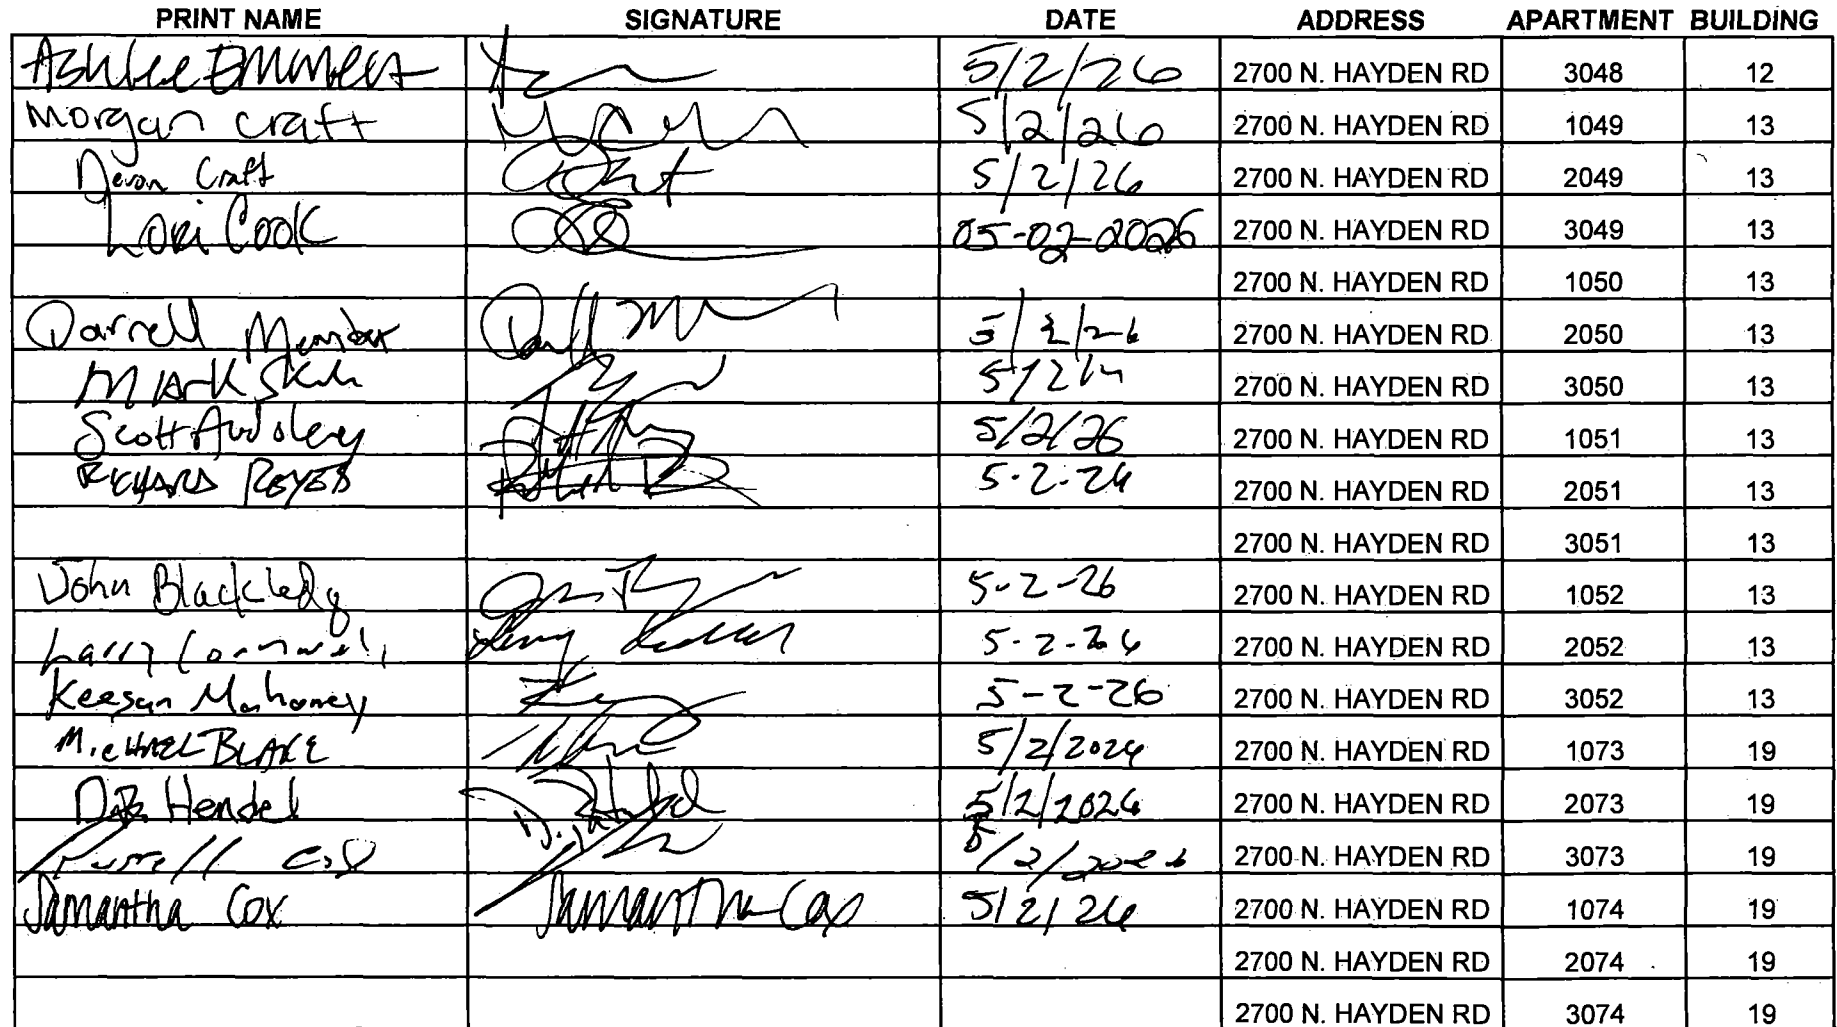 PRINT NAME SIGNATURE DATE ADDRESS APARTMENT BUILDING
Ashlee Emmert 5/2/26 2700 N. HAYDEN RD 3048 12
Morgan Craft 5/2/26 2700 N. HAYDEN RD 1049 13
Devon Craft 5/2/26 2700 N. HAYDEN RD 2049 13
Lori Cook 05-02-2026 2700 N. HAYDEN RD 3049 13
2700 N. HAYDEN RD 1050 13
Darrell 5/2/26 2700 N. HAYDEN RD 2050 13
Mark 2700 N. HAYDEN RD 3050 13
Scott Audsley 5/2/26 2700 N. HAYDEN RD 1051 13
RICHARD REYES 5-2-26 2700 N. HAYDEN RD 2051 13
2700 N. HAYDEN RD 3051 13
John Blackledg 5-2-26 2700 N. HAYDEN RD 1052 13
Larry 5-2-26 2700 N. HAYDEN RD 2052 13
Keegan Mahoney 5-2-26 2700 N. HAYDEN RD 3052 13
MICHAEL BLAKE 5/2/2026 2700 N. HAYDEN RD 1073 19
Hendel 5/2/2026 2700 N. HAYDEN RD 2073 19
Russell 5/2/2026 2700 N. HAYDEN RD 3073 19
Samantha Cox Samantha Cox 5/2/26 2700 N. HAYDEN RD 1074 19
2700 N. HAYDEN RD 2074 19
2700 N. HAYDEN RD 3074 19